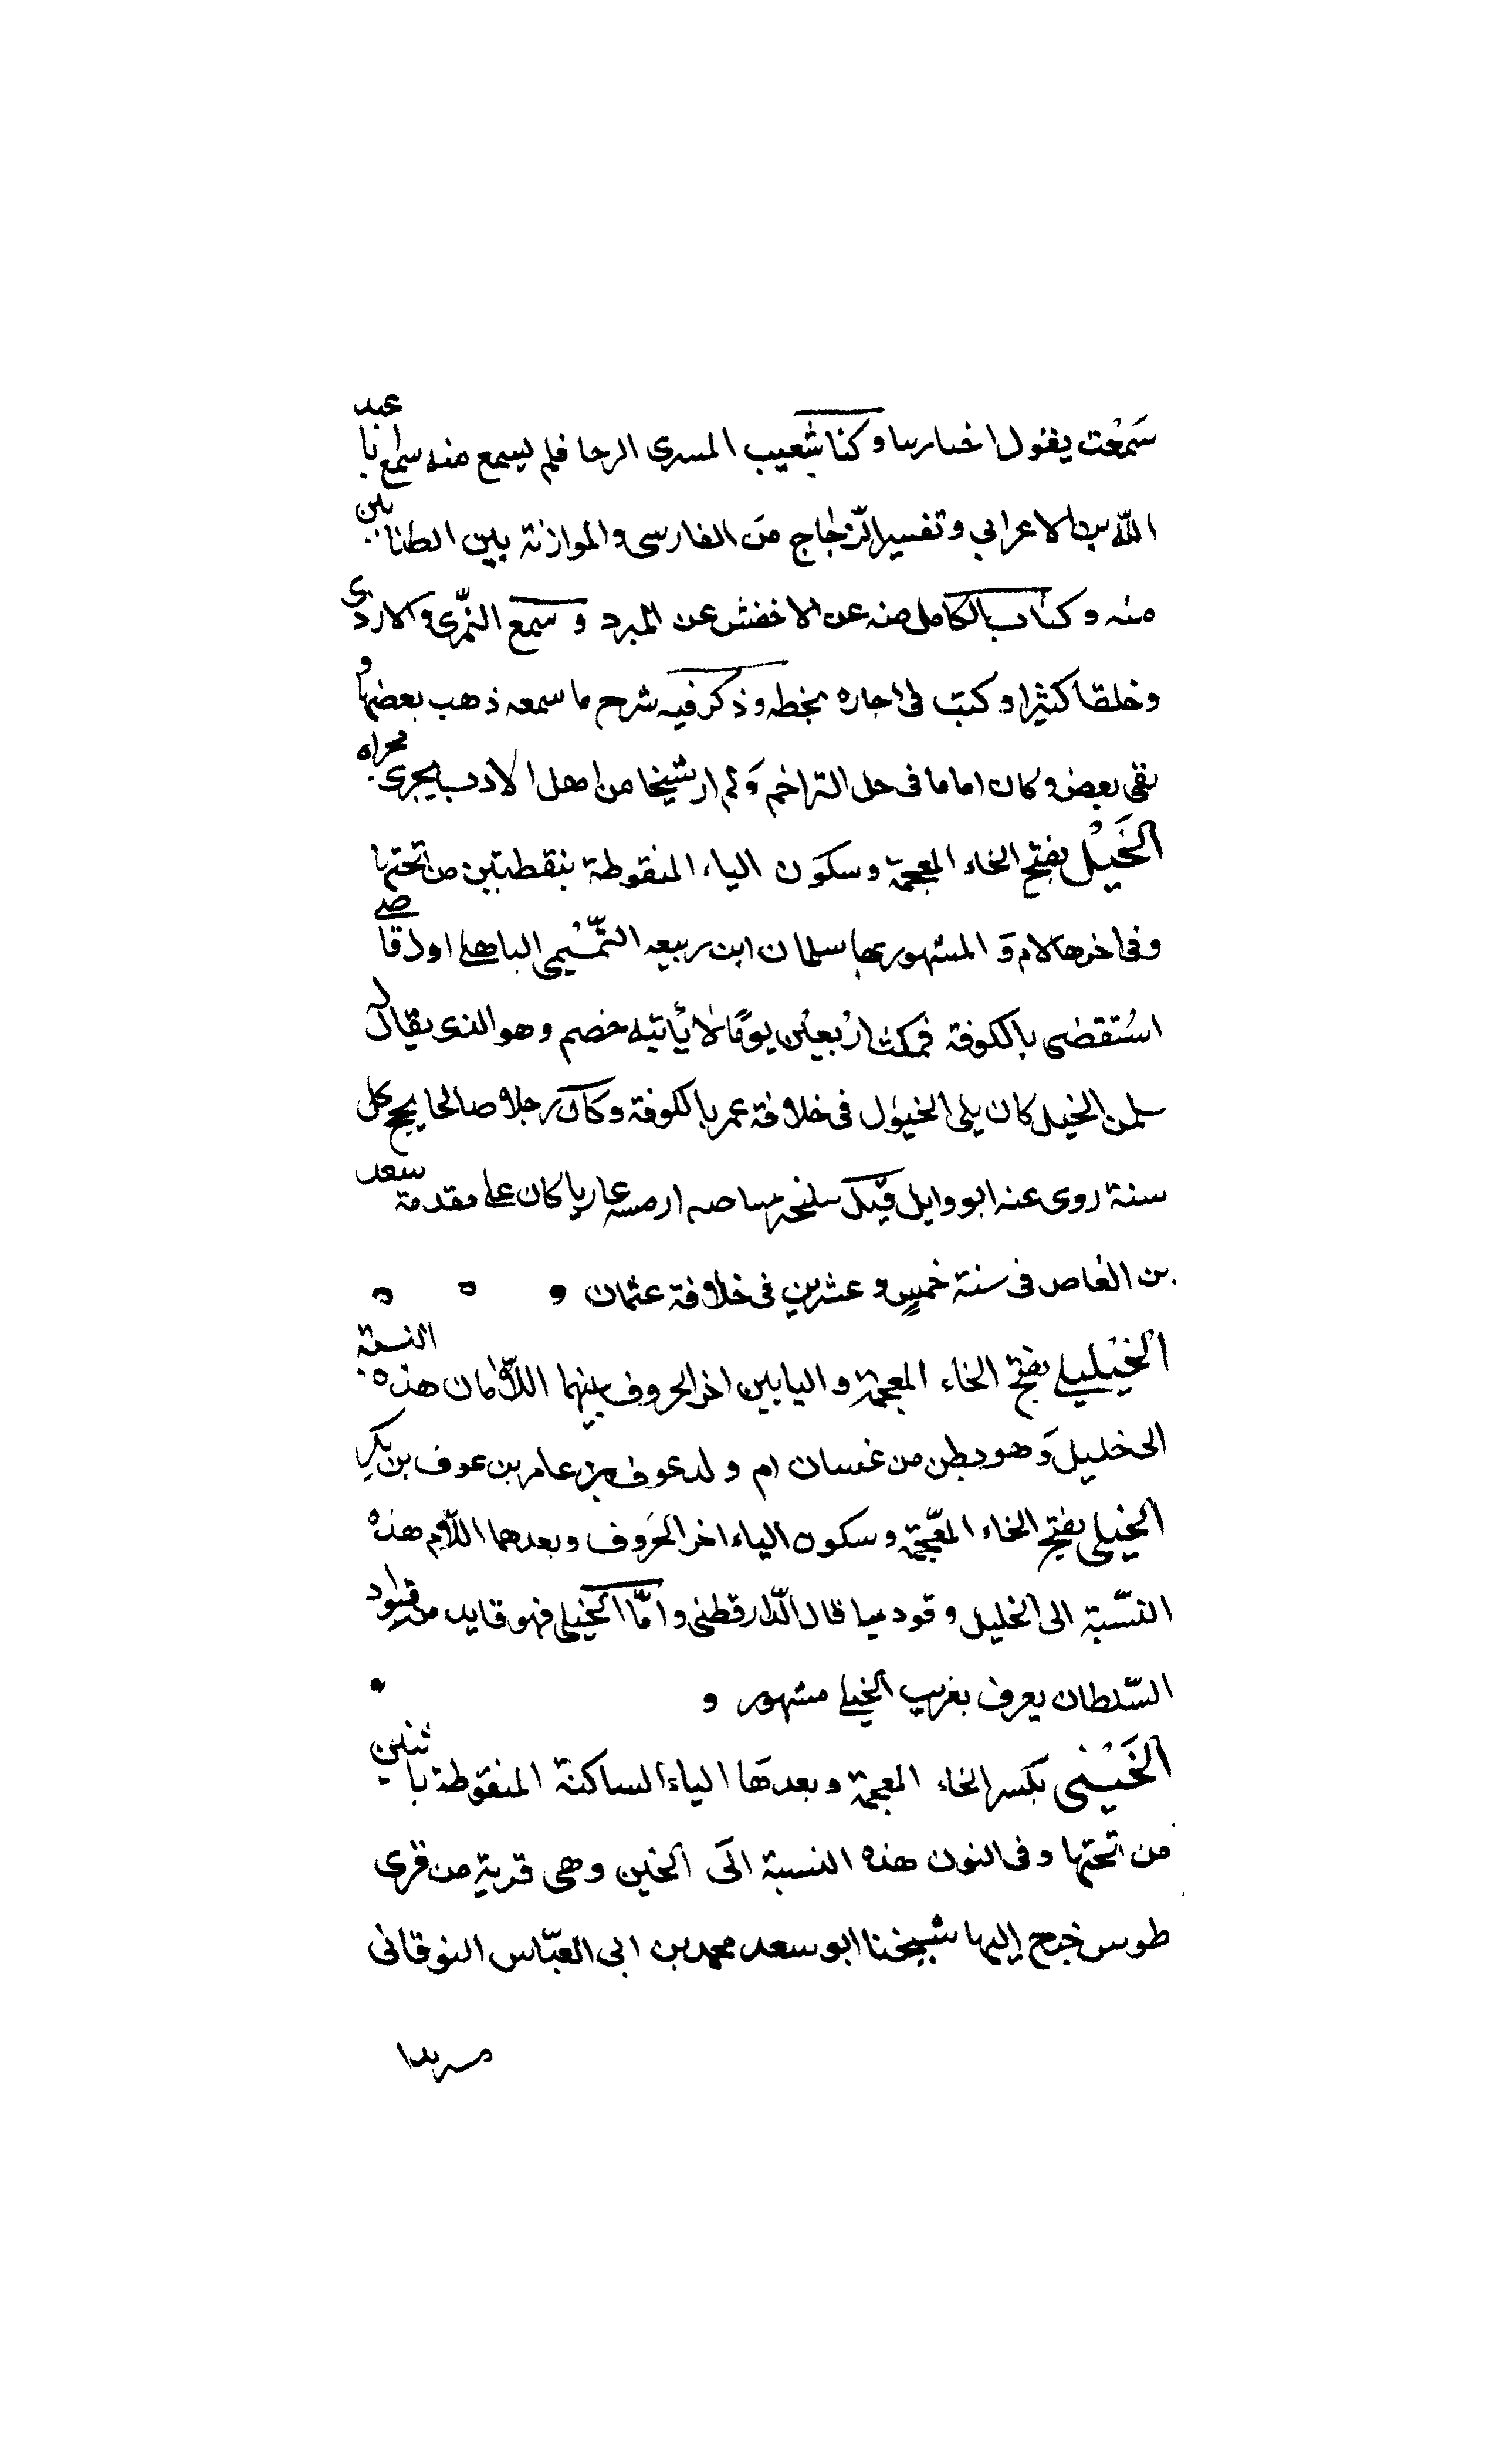 سَمِعْت يقول اخبارنا وكنا شعيب المسرى الرجا فلم يسمع منه سماع ابا عبد
الله بن الاعرابي وتفسير الزّجاج من الفارسى والموازنة بين الطائيين
منه وكتاب الكامل منه عن الاخفش عن المبرد وسمع النّمرى والازدى
وخلقا كثيرا وكتب لى اجازة بخطه وذكر فيه شرح ما سمعه ذهب بعضها و
بقى بعض وكان اماما فى حل التراجم وَلم ار شيخا من اهل الادب يجرى مجراه
الخَيْل بفتح الخاء المعجمة وسكَون الياء المنقوطة بنقطتين من تحتها
وفى اخرها لام وَ المشهور بها سلمان ابن ربيعه التّميمى الباهلى اول قاضى
استُقضى بالكوفة فمكث اربعين يومًا لا يأتيه خصم وهو الذى يقال له
سلمن الخيل كان يلى الخيول فى خلافة عمر بالكوفة وكان رجلا صالحا يحج كل
سنة روى عنه ابو وايل قيل عاريا كان على مقدمة سعد
بن العاص فى سنة خمسٍ وعشرين فى خلافة عثمان
الخَيْليلى بفتح الخاء المعجمة واليايين اخر الحروف بينهما اللّامان هذه النسبة
الى خليل وَهو بطن من غسان ام ولد عوف بن عامر بن عوف بن بكر
الخيلى بفتح الخاء المعجّمة وسكون الياء اخر الحَروف وبعدهما اللّام هذه
النسّبة الى الخليل وقود قال الدّارقطنى وامّا الخيلى فهو قايد من قواد
السّلطان يعرف بغريب الخيلى مشهور و
الخَيْنى بكسر الخاء المعجمة وبعدهَا الياء الساكنة المنقوطة باثنين
من تحتها وفى النون هذه النسبة الى الخين وهى قرية من قرى
طوس خرج إليها شيخنا ابو سعد محمد بن ابى العبّاس النوقانى